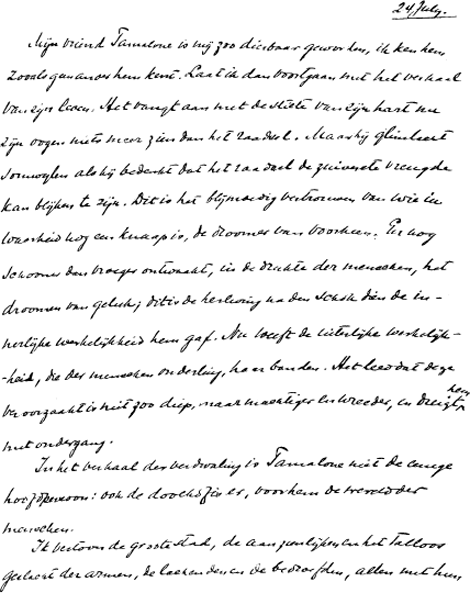 24 July.
Mijn vriend Tamalone is mij zoo dierbaar geworden, ik ken hem
zooals geen ander hem kent. Laat ik dan voortgaan met het verhaal
van zijn leven. Het vangt aan met de stilte van zijn hart nu
zijn oogen niets meer zien dan het raadsel. Maar hij glimlacht
somwijlen als hij bedenkt dat het raadsel de zuiverste vreugde
kan blijken te zijn. Dit is het blijmoedig vertrouwen van wie in
waarheid nog een knaap is, de droomer van voorheen. En nog
schooner dan vroeger ontwaakt, in de drukte der menschen, het
droomen van geluk; dit is de herleving na den schok dien de in-
nerlijke werkelijkheid hem gaf. Nu heeft de uiterlijke werkelijk-
-heid, die der menschen onderling, haar banden. Het leed dat deze
veroorzaakt is niet zoo diep, maar machtiger en wreeder, en dreigt hem
met ondergang.
In het verhaal der verdwaling is Tamalone niet de eenige
hoofdpersoon: ook de doolhof is er, voor hem de wereld der
menschen.
Ik vertoon de groote stad, de aanzienlijken en het talloos
geslacht der armen, de lachenden en de bedroefden, allen met hun